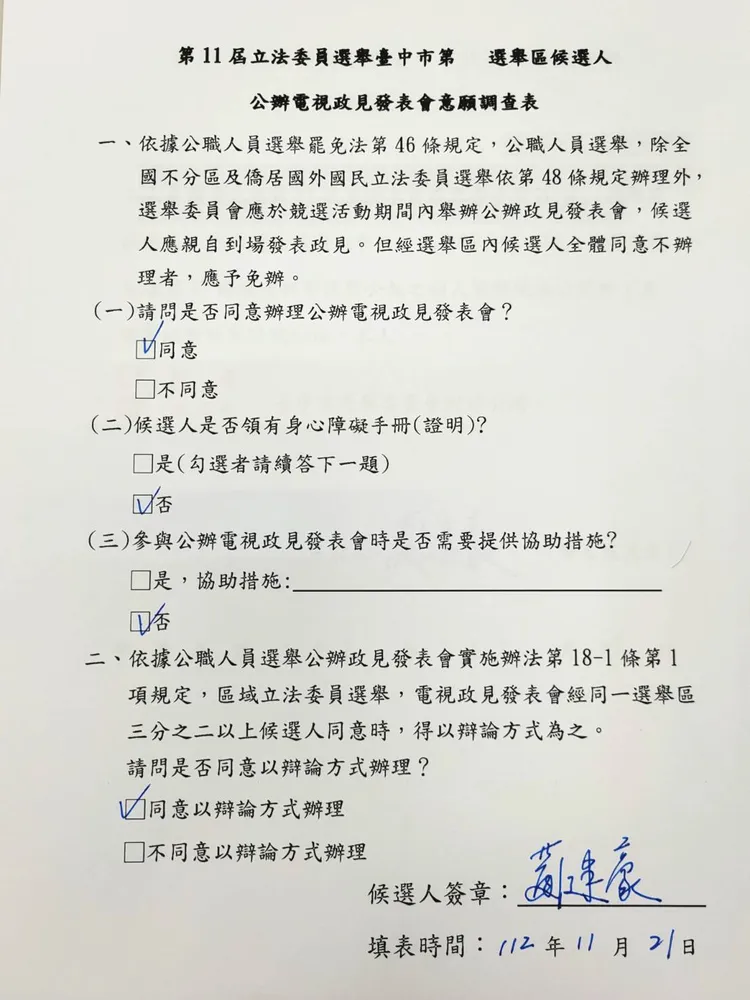 第11屆立法委員選舉臺中市第 選舉區候選人
公辦電視政見發表會意願調查表
一、依據公職人員選舉罷免法第46條規定，公職人員選舉，除全
國不分區及僑居國外國民立法委員選舉依第48條規定辦理外，
選舉委員會應於競選活動期間內舉辦公辦政見發表會，候選
人應親自到場發表政見。但經選舉區內候選人全體同意不辦
理者，應予免辦。
(一)請問是否同意辦理公辦電視政見發表會？
☑同意
□不同意
(二)候選人是否領有身心障礙手冊(證明)?
□是(勾選者請續答下一題)
☑否
(三)參與公辦電視政見發表會時是否需要提供協助措施?
□是，協助措施:
☑否
二、依據公職人員選舉公辦政見發表會實施辦法第18-1條第1
項規定，區域立法委員選舉，電視政見發表會經同一選舉區
三分之二以上候選人同意時，得以辯論方式為之。
請問是否同意以辯論方式辦理？
☑同意以辯論方式辦理
□不同意以辯論方式辦理
候選人簽章：
填表時間：112年11月21日